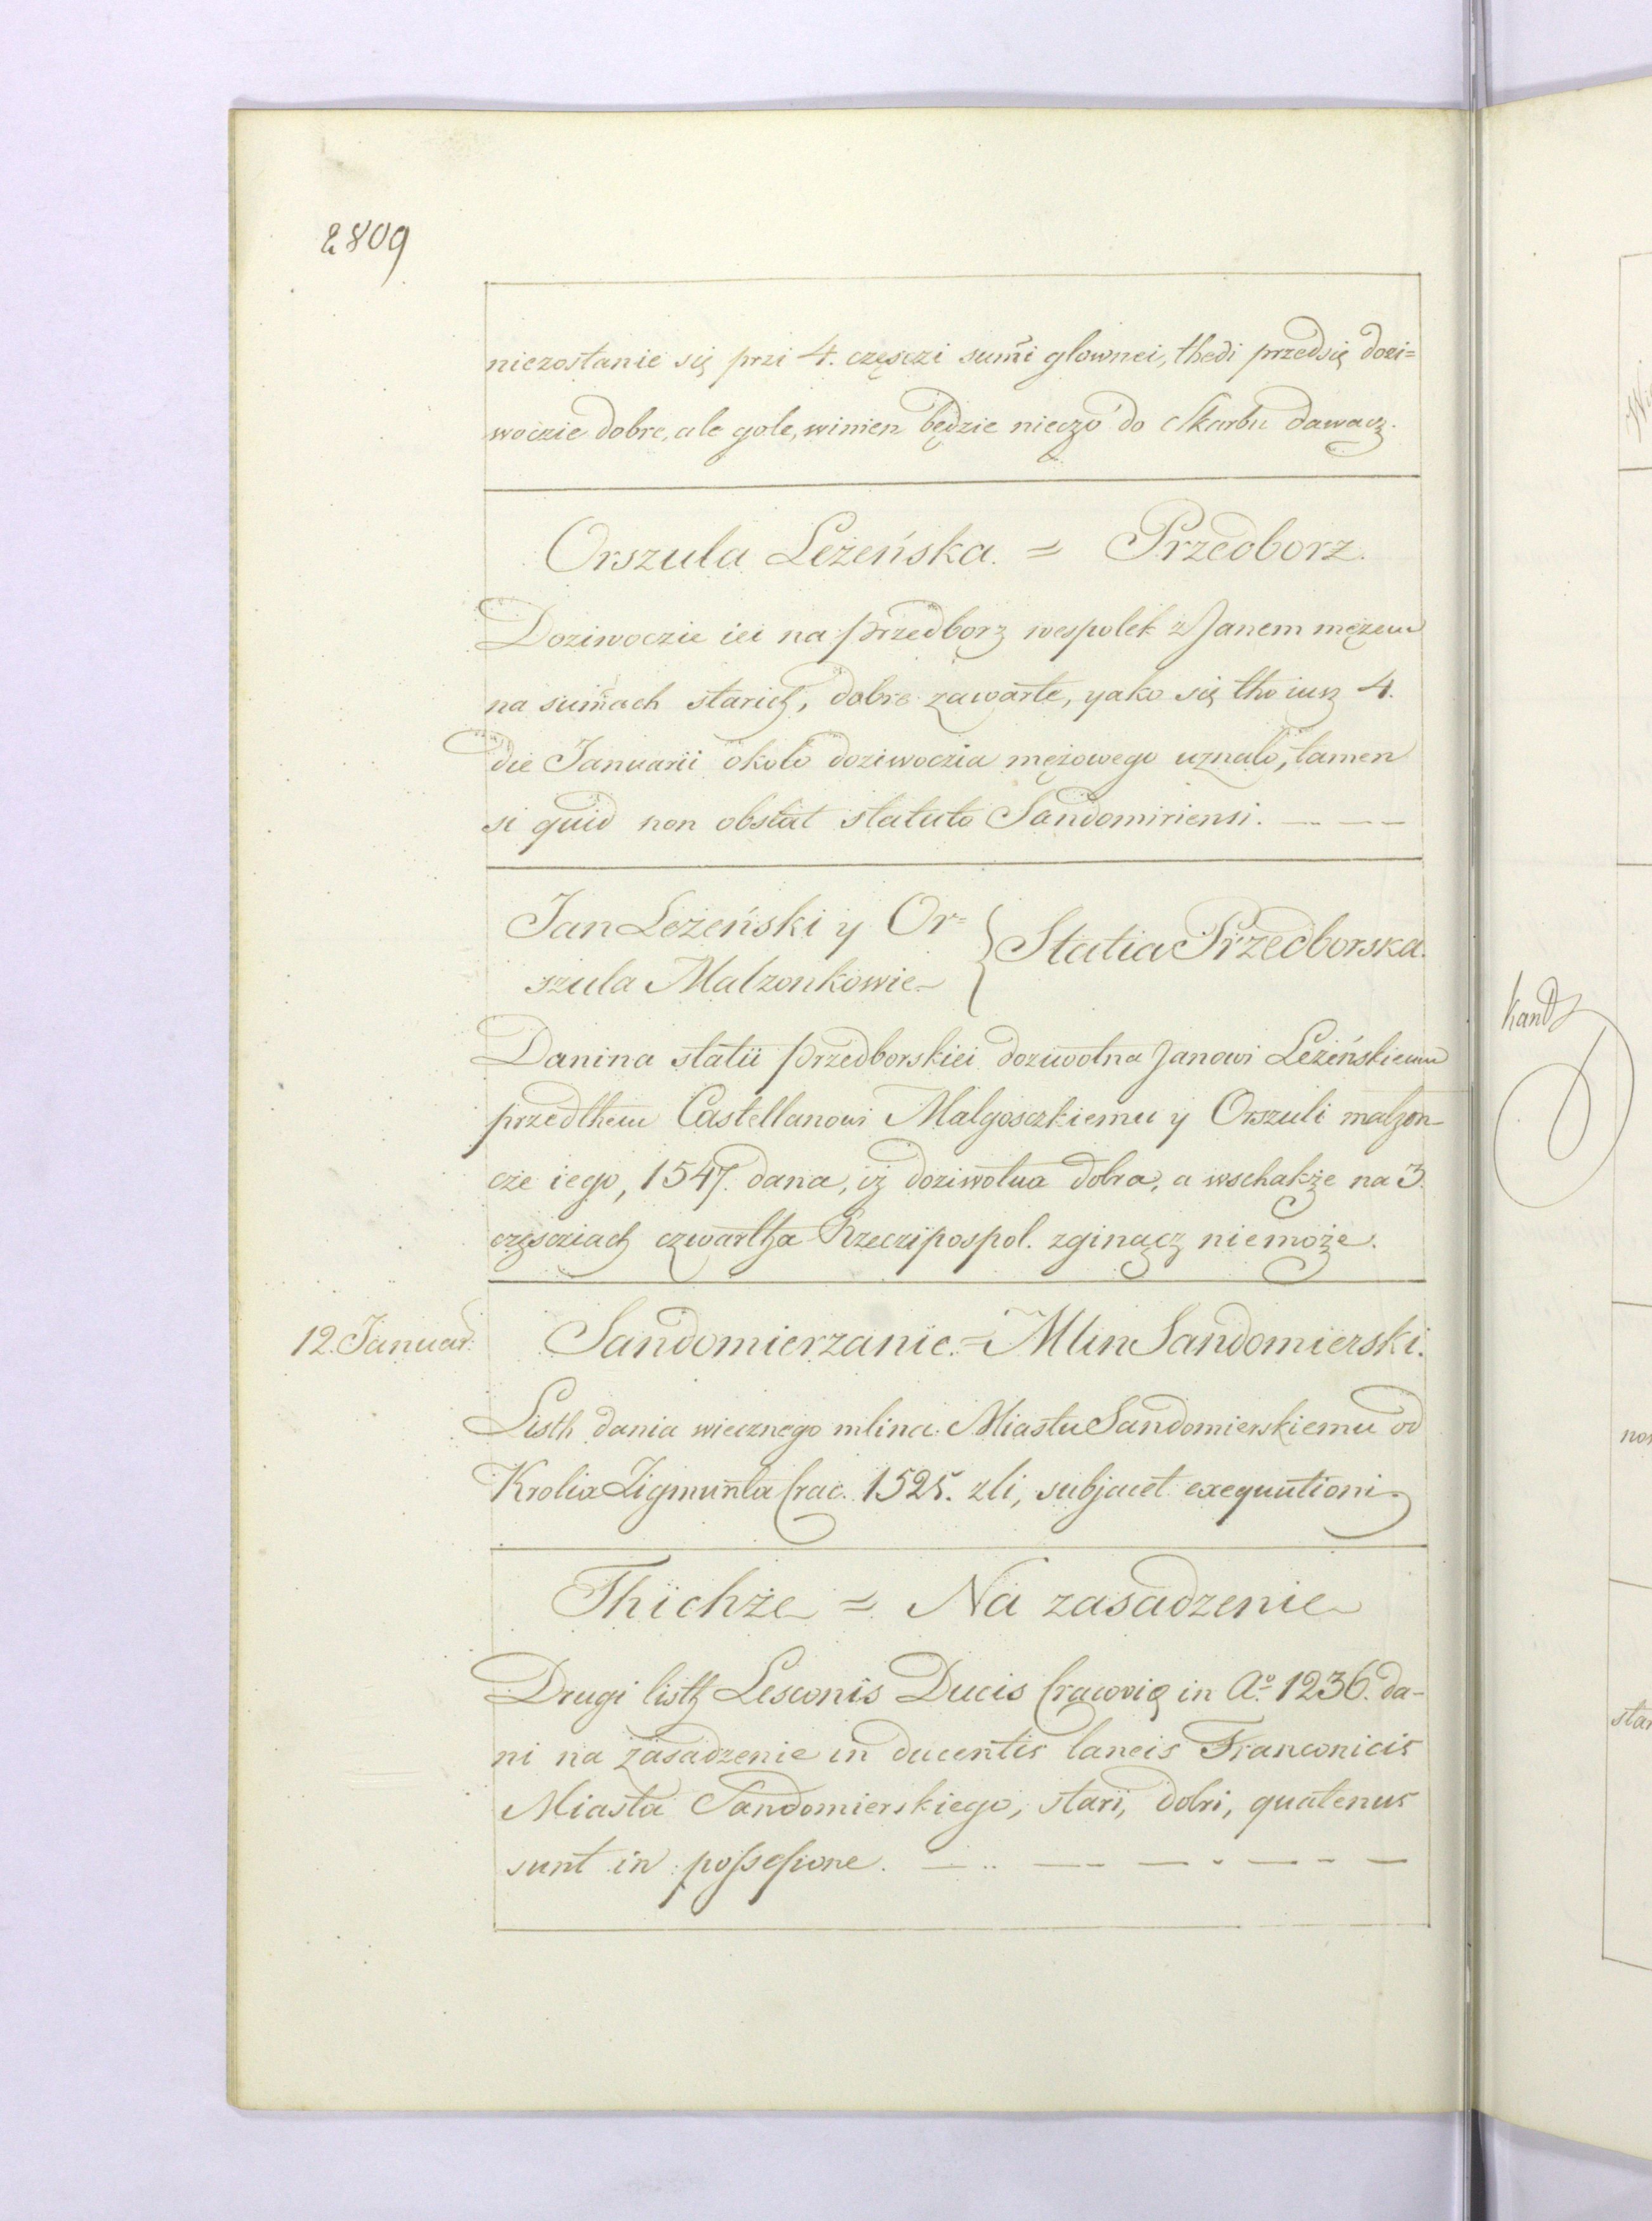 2809
niezostanie się przi 4. częsczi sum̃i glownei, thedi przedsię dozi=
woczie dobre, ale gole, winien będzie nieczo do Skarbu dawacz.
Orszula Leżeńska. = Przedborz.
Doziwoczie iei na przedborz wespolek z Janem mężem
na sum̃ach starich, dobre zawarte, yako się tho iusz 4.
die Januarii około doziwoczia mężowego uznało, tamen
si quid non obstat statuto Sandomiriensi.
Jan Leżeński y Or=
szula Malzonkowie
Statia Przedborska.
Danina statii przedborskiei doziwotna Janowi Leżeńskiemu
przedthem Castellanowi Malgosczkiemu y Orszuli malzon-
cze iego, 1547. dana, iż doziwotna dobra, a wschakże na 3.
częscziach czwartha Rzeczipospol. zginacz niemoże.
12. Januar:
Sandomierzanie. = Mlin Sandomierski.
Listh dania wiecznego mlina Miastu Sandomierskiemu od
Krolia Zigmunta Crac. 1525. zli, subjacet exequutioni
Thichże = Na zasadzenie
Drugi listh Lesconis Ducis Cracovię in Aº 1236. da-
ni na zasadzenie in ducentis laneis Franconicis
Miasta Sandomierskiego, stari, dobri, quatenus
sunt in possessione.
kand
nos
star